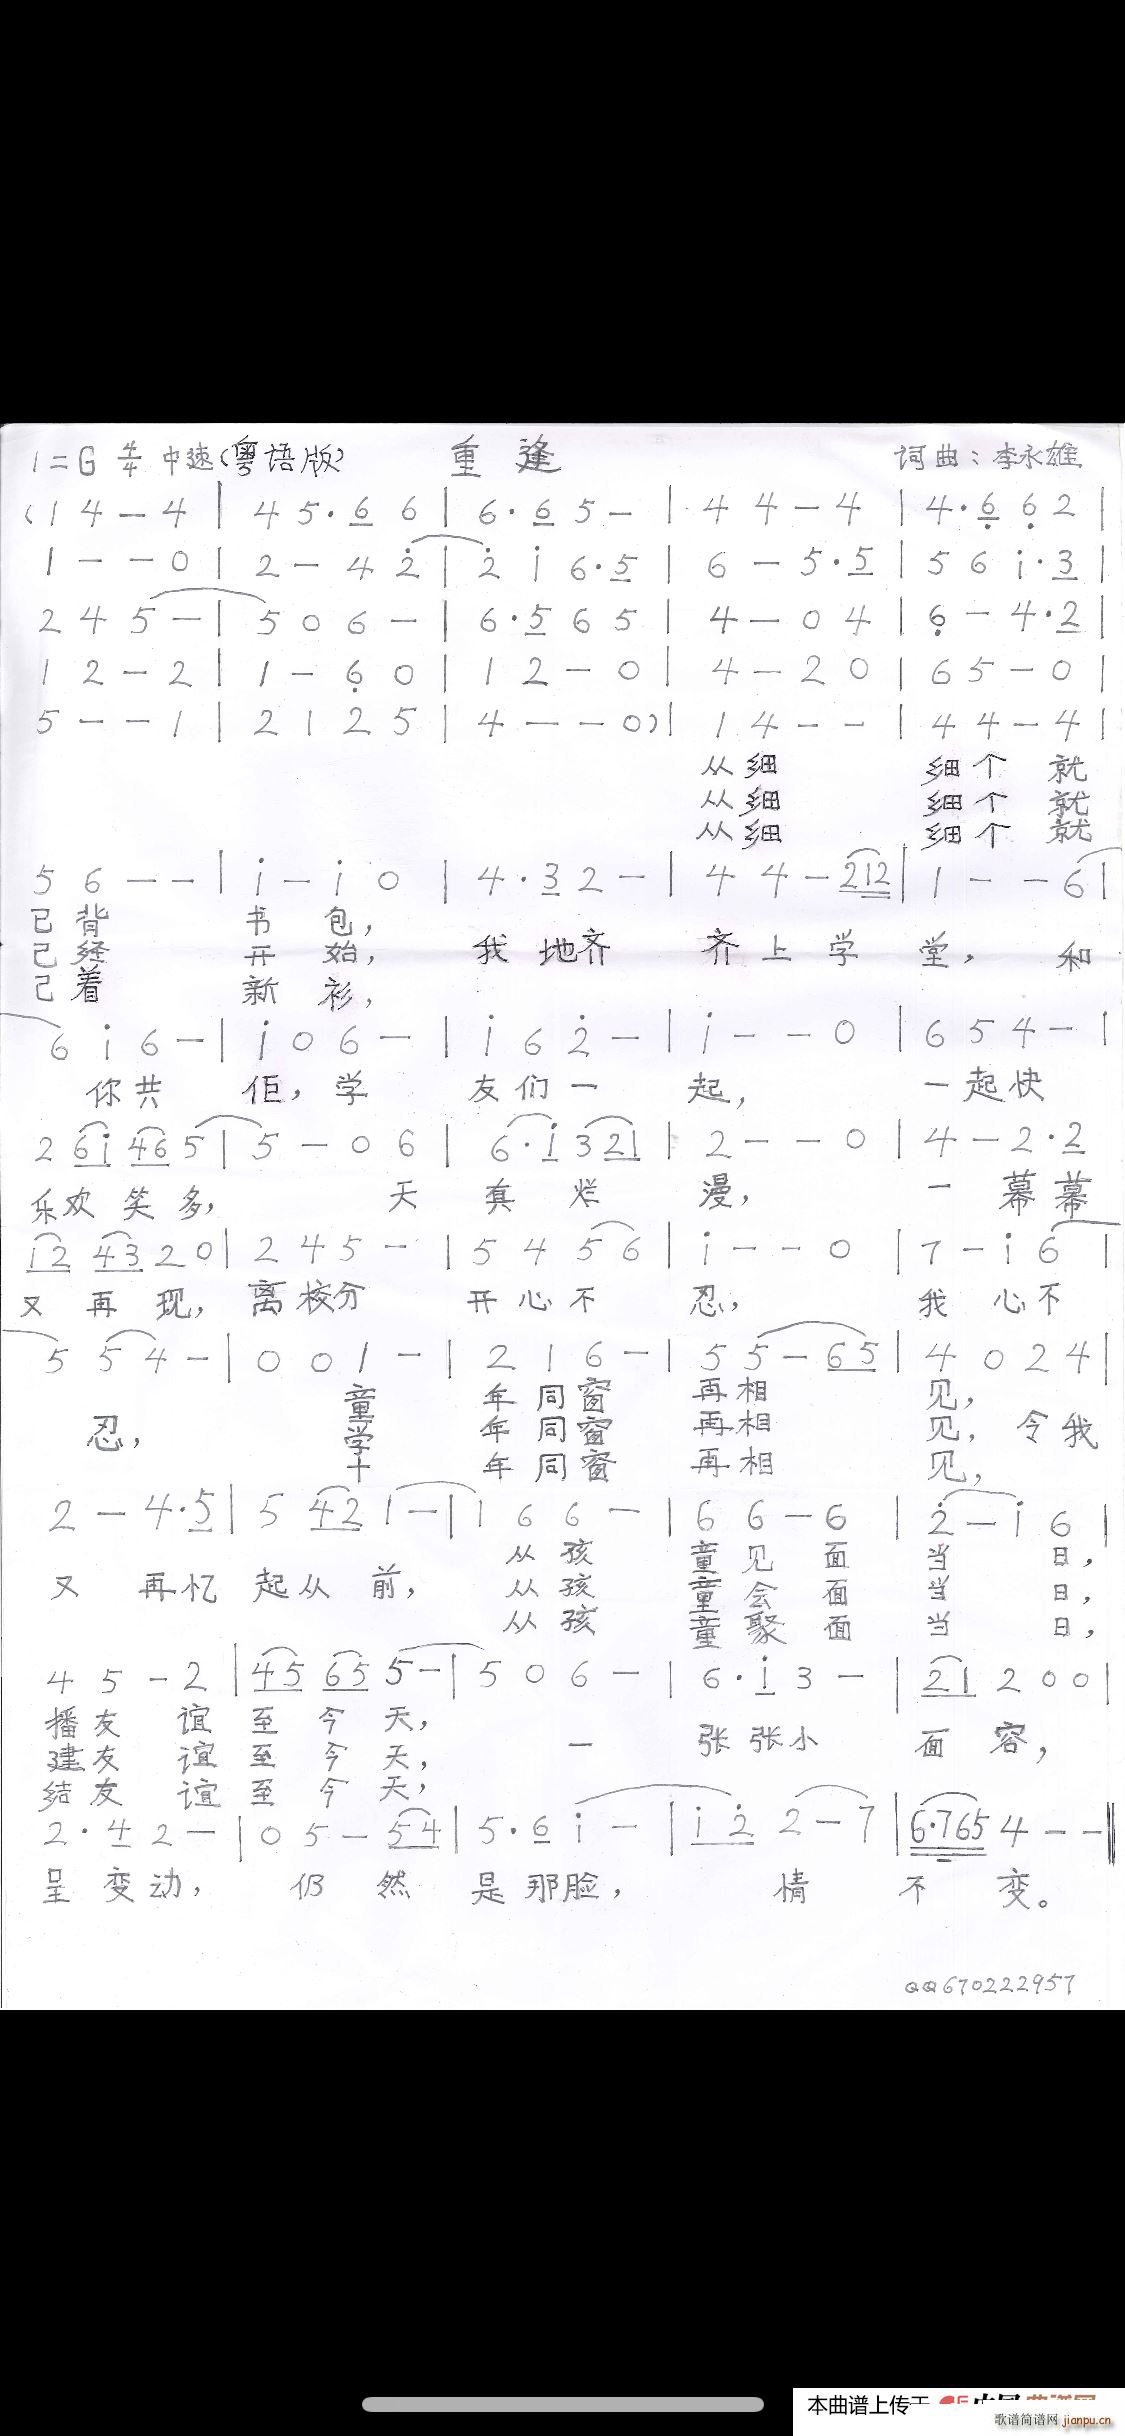 1=G 4/4 中速(粤语版) 重逢 词曲:李永雄
(1 4 — 4 | 4 5 · 6 6 | 6 · 6 5 — | 4 4 — 4 | 4 · 6̣ 6̣ 2 |
1 — — 0 | 2 — 4 2̇ | 2̇ i 6 · 5 | 6 — 5 · 5 | 5 6 i · 3 |
2 4 5 — | 5 0 6 — | 6 · 5 6 5 | 4 — 0 4 | 6̣ — 4 · 2 |
1 2 — 2 | 1 — 6̣ 0 | 1 2 — 0 | 4 — 2 0 | 6 5 — 0 |
5 — — 1 | 2 1 2 5 | 4 — — 0) | 1 4 — — | 4 4 — 4 |
从细 细个 就
从细 细个 就
从细 细个 就
5 6 — — | i — i 0 | 4 · 3 2 — | 4 4 — 212 | 1 — — 6 |
已背 书包,
已经 开始, 我地齐 齐上学 堂, 和
已着 新衫,
6 i 6 — | i 0 6 — | i 6 2̇ — | i — — 0 | 6 5 4 — |
你共 佢,学 友们一 起, 一起快
2 6i 46 5 | 5 — 0 6 | 6 · i 3 21 | 2 — — 0 | 4 — 2 · 2
乐欢笑多, 天 真烂 漫, 一幕幕
i2 43 2 0 | 2 4 5 — | 5 4 5 6 | i — — 0 | 7 — i 6 |
又再现, 离校分 开心不 忍, 我心不
5 5 4 — | 0 0 1 — | 2 1 6 — | 5 5 — 65 | 4 0 2 4 |
童 年同窗 再相 见,
忍, 学 年同窗 再相 见,令我
十 年同窗 再相 见,
2 — 4 · 5 | 5 42 1 — | 1 6 6 — | 6 6 — 6 | 2̇ — i 6 |
从孩 童见面 当日,
又再忆 起从前, 从孩 童会面 当日,
从孩 童聚面 当日,
4 5 — 2 | 45 65 5 — | 5 0 6 — | 6 · i 3 — | 21 2 0 0 |
播友谊 至今天,
建友谊 至今天, 一 张张小 面容,
结友谊 至今天,
2 · 4 2 — | 0 5 — 54 | 5 · 6 i — | i2̇ 2 — 7 | 6·765 4 — — ||
呈变动, 仍然 是那脸, 情 不变。
QQ670222957
本曲谱上传于
歌谱简谱网 jianpu.cn